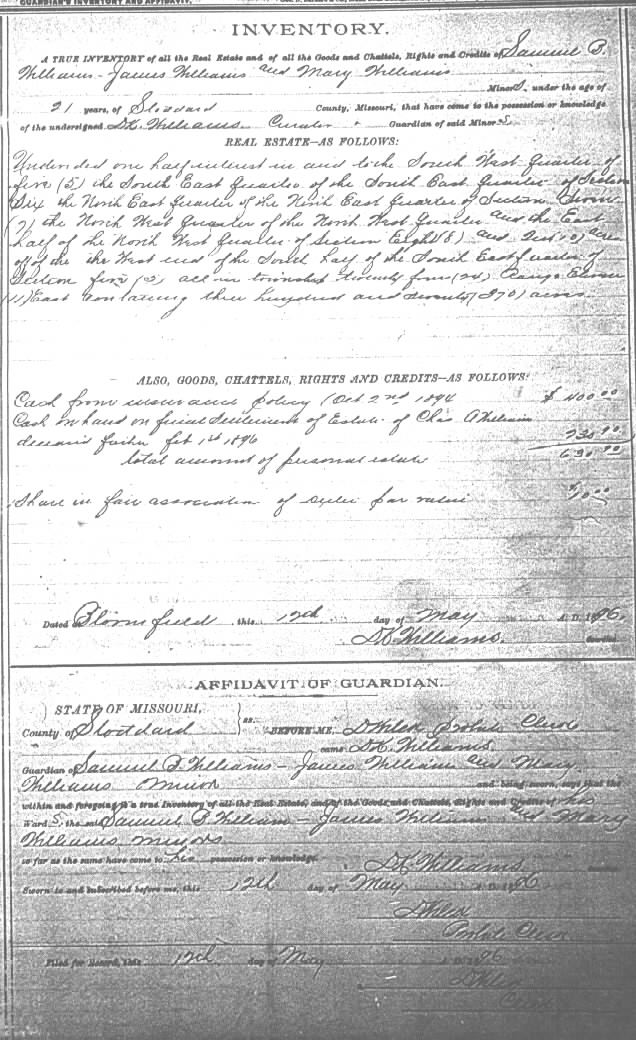 GUARDIAN'S INVENTORY AND AFFIDAVIT.
INVENTORY.
A TRUE INVENTORY of all the Real Estate and of all the Goods and Chattels, Rights and Credits of Samuel B.
Williams - James Williams and Mary Williams
Minor S, under the age of
21 years, of Stoddard County, Missouri, that have come to the possession or knowledge
of the undersigned D.K. Williams Curator + Guardian of said Minor S.
REAL ESTATE—AS FOLLOWS:
Undivided one half interest in and to the South West Quarter of
five (5) the South East Quarter of the South East Quarter of Section
Six the North East Quarter of the North East Quarter of Section Seven
(7) the North West Quarter of the North West Quarter and the East
half of the North West Quarter of Section Eight (8) and acres
off of the West end of the South half of the South East quarter of
Section five (5) all in township twenty four (24) Range Eleven
(11) East containing three hundred and seventy (370) acres
ALSO, GOODS, CHATTELS, RIGHTS AND CREDITS—AS FOLLOWS:
Cash from insurance policy (Oct 2nd 1894 $400.00
Cash on hand on final settlement of Estate of Chas A William
deceased father feb 1st 1896 230.00
total amount of personal estate 630.00
Share in fair association of par value $10.00
Dated at Bloomfield this 12th day of May A. D. 1896.
D.K. Williams.
AFFIDAVIT OF GUARDIAN.
STATE OF MISSOURI,
County of Stoddard } ss. BEFORE ME, Probate Clerk
came D.K. Williams
Guardian of Samuel B. Williams - James William and Mary
Williams minor and being sworn, says that the
within and foregoing is a true Inventory of all the Real Estate, and of the Goods and Chattels, Rights and Credits of his
Ward S, the said Samuel B William - James Williams and Mary
Williams minors
so far as the same have come to his possession or knowledge. D.K. Williams
Sworn to and subscribed before me, this 12th day of May A. D. 1896
Probate Clerk
Filed for Record, this 12th day of May A. D. 1896
Clerk